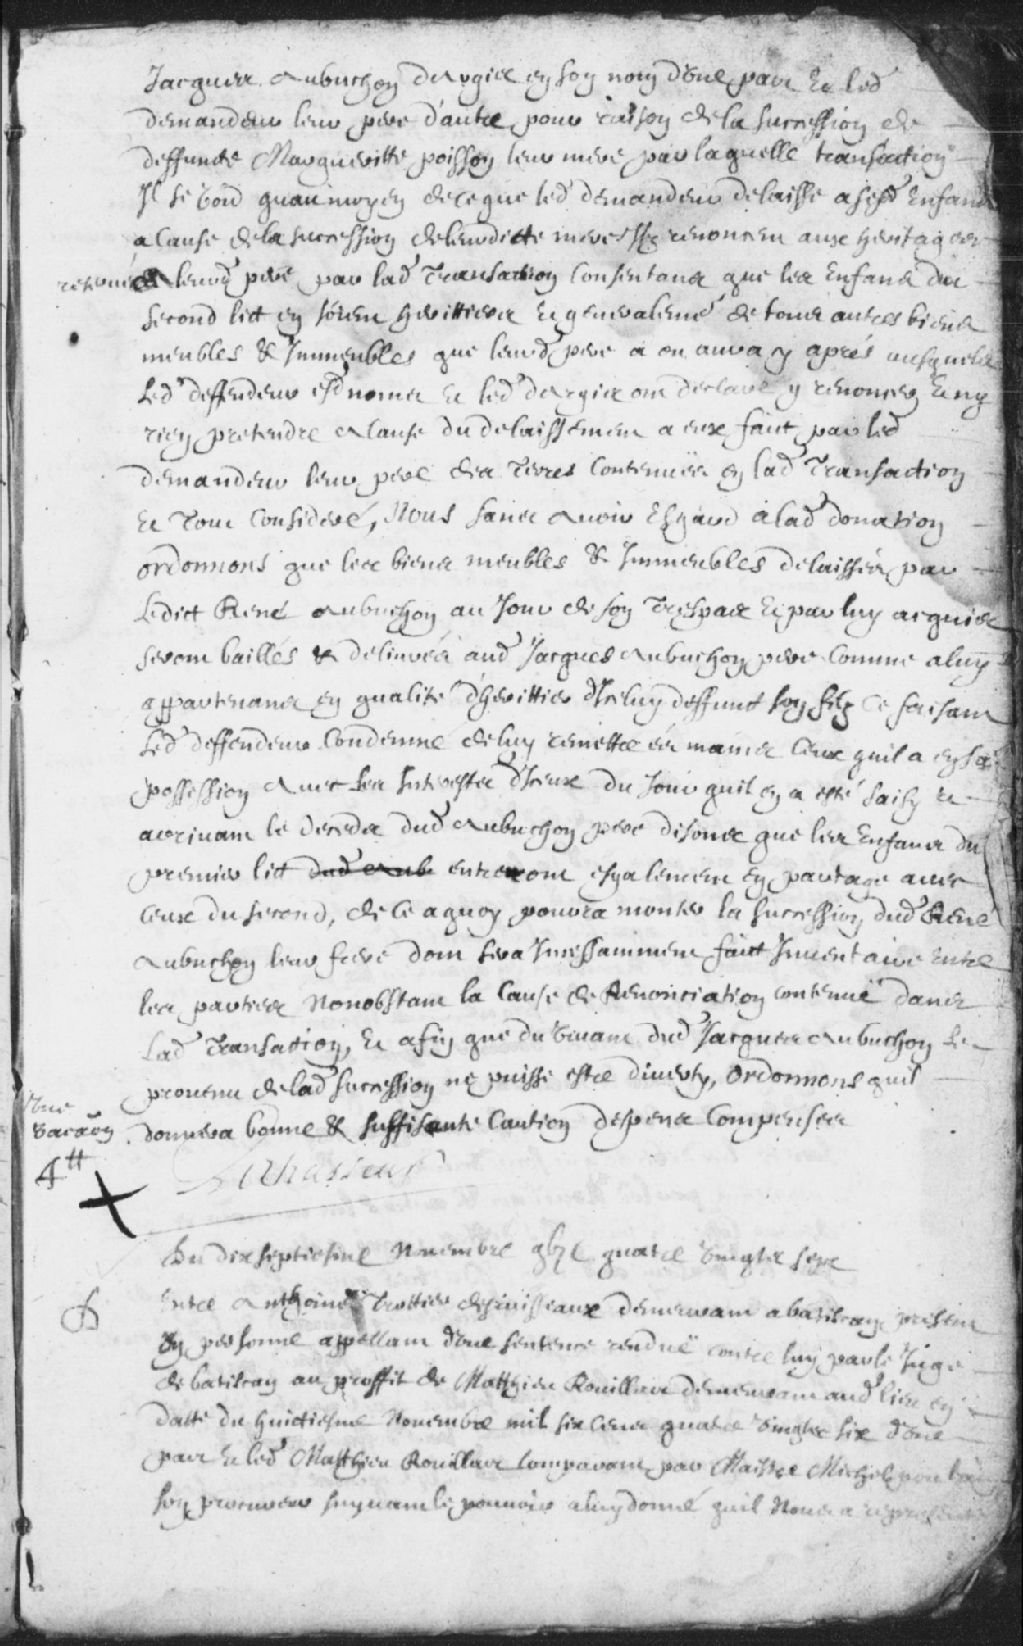 Jacques Aubuchon Dargis en son nom d'une part Et led
demandeur leur pere d'autre pour raison de la succession de
deffunte Margueritte poisson leur mere par laquelle transaction
Il se void quau moyen de ce que led demandeur delaisse a sesd Enfans
a Cause de la succession de leurditte mere Ils renoncent aux heritages
de leurd pere par lad Transaction Consentans que les Enfans du
second lict en soient herittiers Et generalemt de tous autres biens
meubles & Immeubles que leurd pere a ou aura cy aprés ausquels
Led deffendeur esd noms et led dargis ont declaré y renoncer Et ny
rien pretendre a Cause du delaissement a eux faict par led
demandeur leur pere des Terres Contenuës en lad Transaction
Et Tout Consideré, Nous sans avoir Esgard à lad donation
ordonnons que les biens meubles & Immeubles delaissés par
Ledict René aubuchon au Jour de son Trespas Et par luy acquis
seront baillés & delivrés aud Jacques Aubuchon pere Comme a luy
appartenans en qualité d'herittier d'Iceluy deffunt son filz Ce faisant
Led deffendeur Condemné de luy remettre és mains Ceux quil a en sa
possession avec les Interestz d'Iceux du Jour quil en a esté saisy Et
arrivant le deceds dud Aubuchon pere disons que les Enfans du
premier lict dud Aub entreront esgalement en partage avec
Ceux du second, de Ce a quoy pourra monter la succession dud René
Aubuchon leur frere dont sera Incessamment faict Inventaire Entre
les parties Nonobstant la Cause de Renonciation contenuë dans
Lad Transaction, Et afin que du vivant dud Jacques Aubuchon Le
provenu de lad succession ne puisse estre diverty, Ordonnons quil
donnera bonne & suffisante Caution despens Compensés
Une
vacaon
4tt
Du dix septiesme Novembre gbje quatre vingts sept
Entre Anthoine Trottier desruisseaux demeurant a batiscan present
En personne appellant d'une sentence renduë contre luy par le Juge
de batiscan au proffit de Matthieu Rouillard demeurant aud lieu en
datte du huictiesme Novembre mil six Cens quatre vingts six d'une
part Et led Matthieu Rouillard Comparant par Maistre Michel
son procureur suyvant le pouvoir a luy donné quil Nous a representé